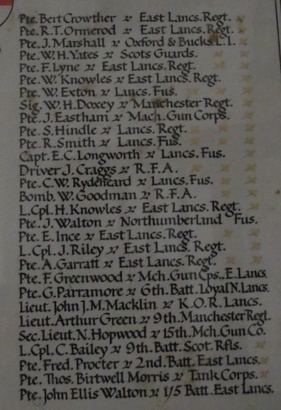 Pte. Bert Crowther x East Lancs. Regt.
Pte. R.T. Ormerod x East Lancs. Regt.
Pte. J. Marshall x Oxford & Bucks L.I.
Pte. W.H. Yates x Scots Guards.
Pte. F. Lyne x East Lancs. Regt.
Pte. W. Knowles x East Lancs. Regt.
Pte. W. Exton x Lancs. Fus.
Sig. W.H. Doxey x Manchester Regt.
Pte. J. Eastham x Mach. Gun Corps.
Pte. S. Hindle x Lancs. Regt.
Pte. R. Smith x Lancs. Fus.
Capt. E.C. Longworth x Lancs. Fus.
Driver J. Craggs x R.F.A.
Pte. C.W. Rydeheard x Lancs. Fus.
Bomb. W. Goodman x R.F.A.
L. Cpl. H. Knowles x East Lancs. Regt.
Pte. J. Walton x Northumberland Fus.
Pte. E. Ince x East Lancs. Regt.
L. Cpl. J. Riley x East Lancs. Regt.
Pte. A. Garratt x East Lancs. Regt.
Pte. F. Greenwood x Mch. Gun Cps., E. Lancs
Pte. G. Parramore x 6th. Batt. Loyal N. Lancs.
Lieut. John J.M. Macklin x K.O.R. Lancs.
Lieut. Arthur Green x 9th. Manchester Regt.
Sec. Lieut. N. Hopwood x 15th. Mch. Gun Co.
L. Cpl. C. Bailey x 9th. Batt. Scot. Rfls.
Pte. Fred. Procter x 2nd. Batt. East Lancs.
Pte. Thos. Birtwell Morris x Tank Corps.
Pte. John Ellis Walton x 1/5 Batt. East Lancs.